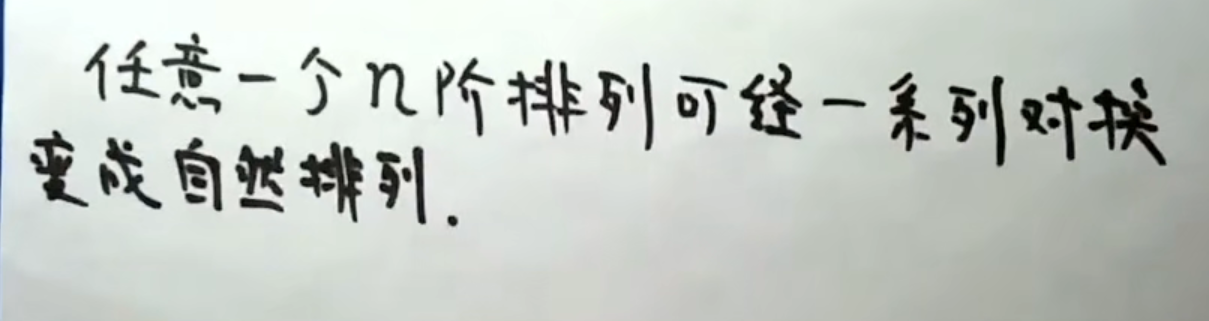 任意一个n阶排列可经一系列对换
变成自然排列.